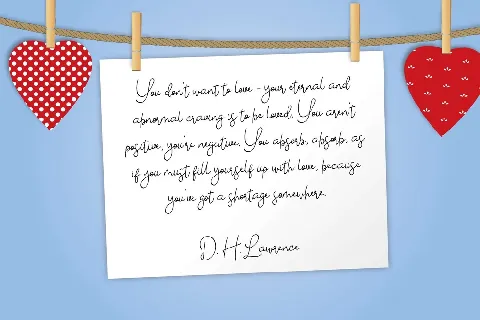 You don't want to love - your eternal and
abnormal craving is to be loved. You aren't
positive, you're negative. You absorb, absorb, as
if you must fill yourself up with love, because
you've got a shortage somewhere.
D. H. Lawrence